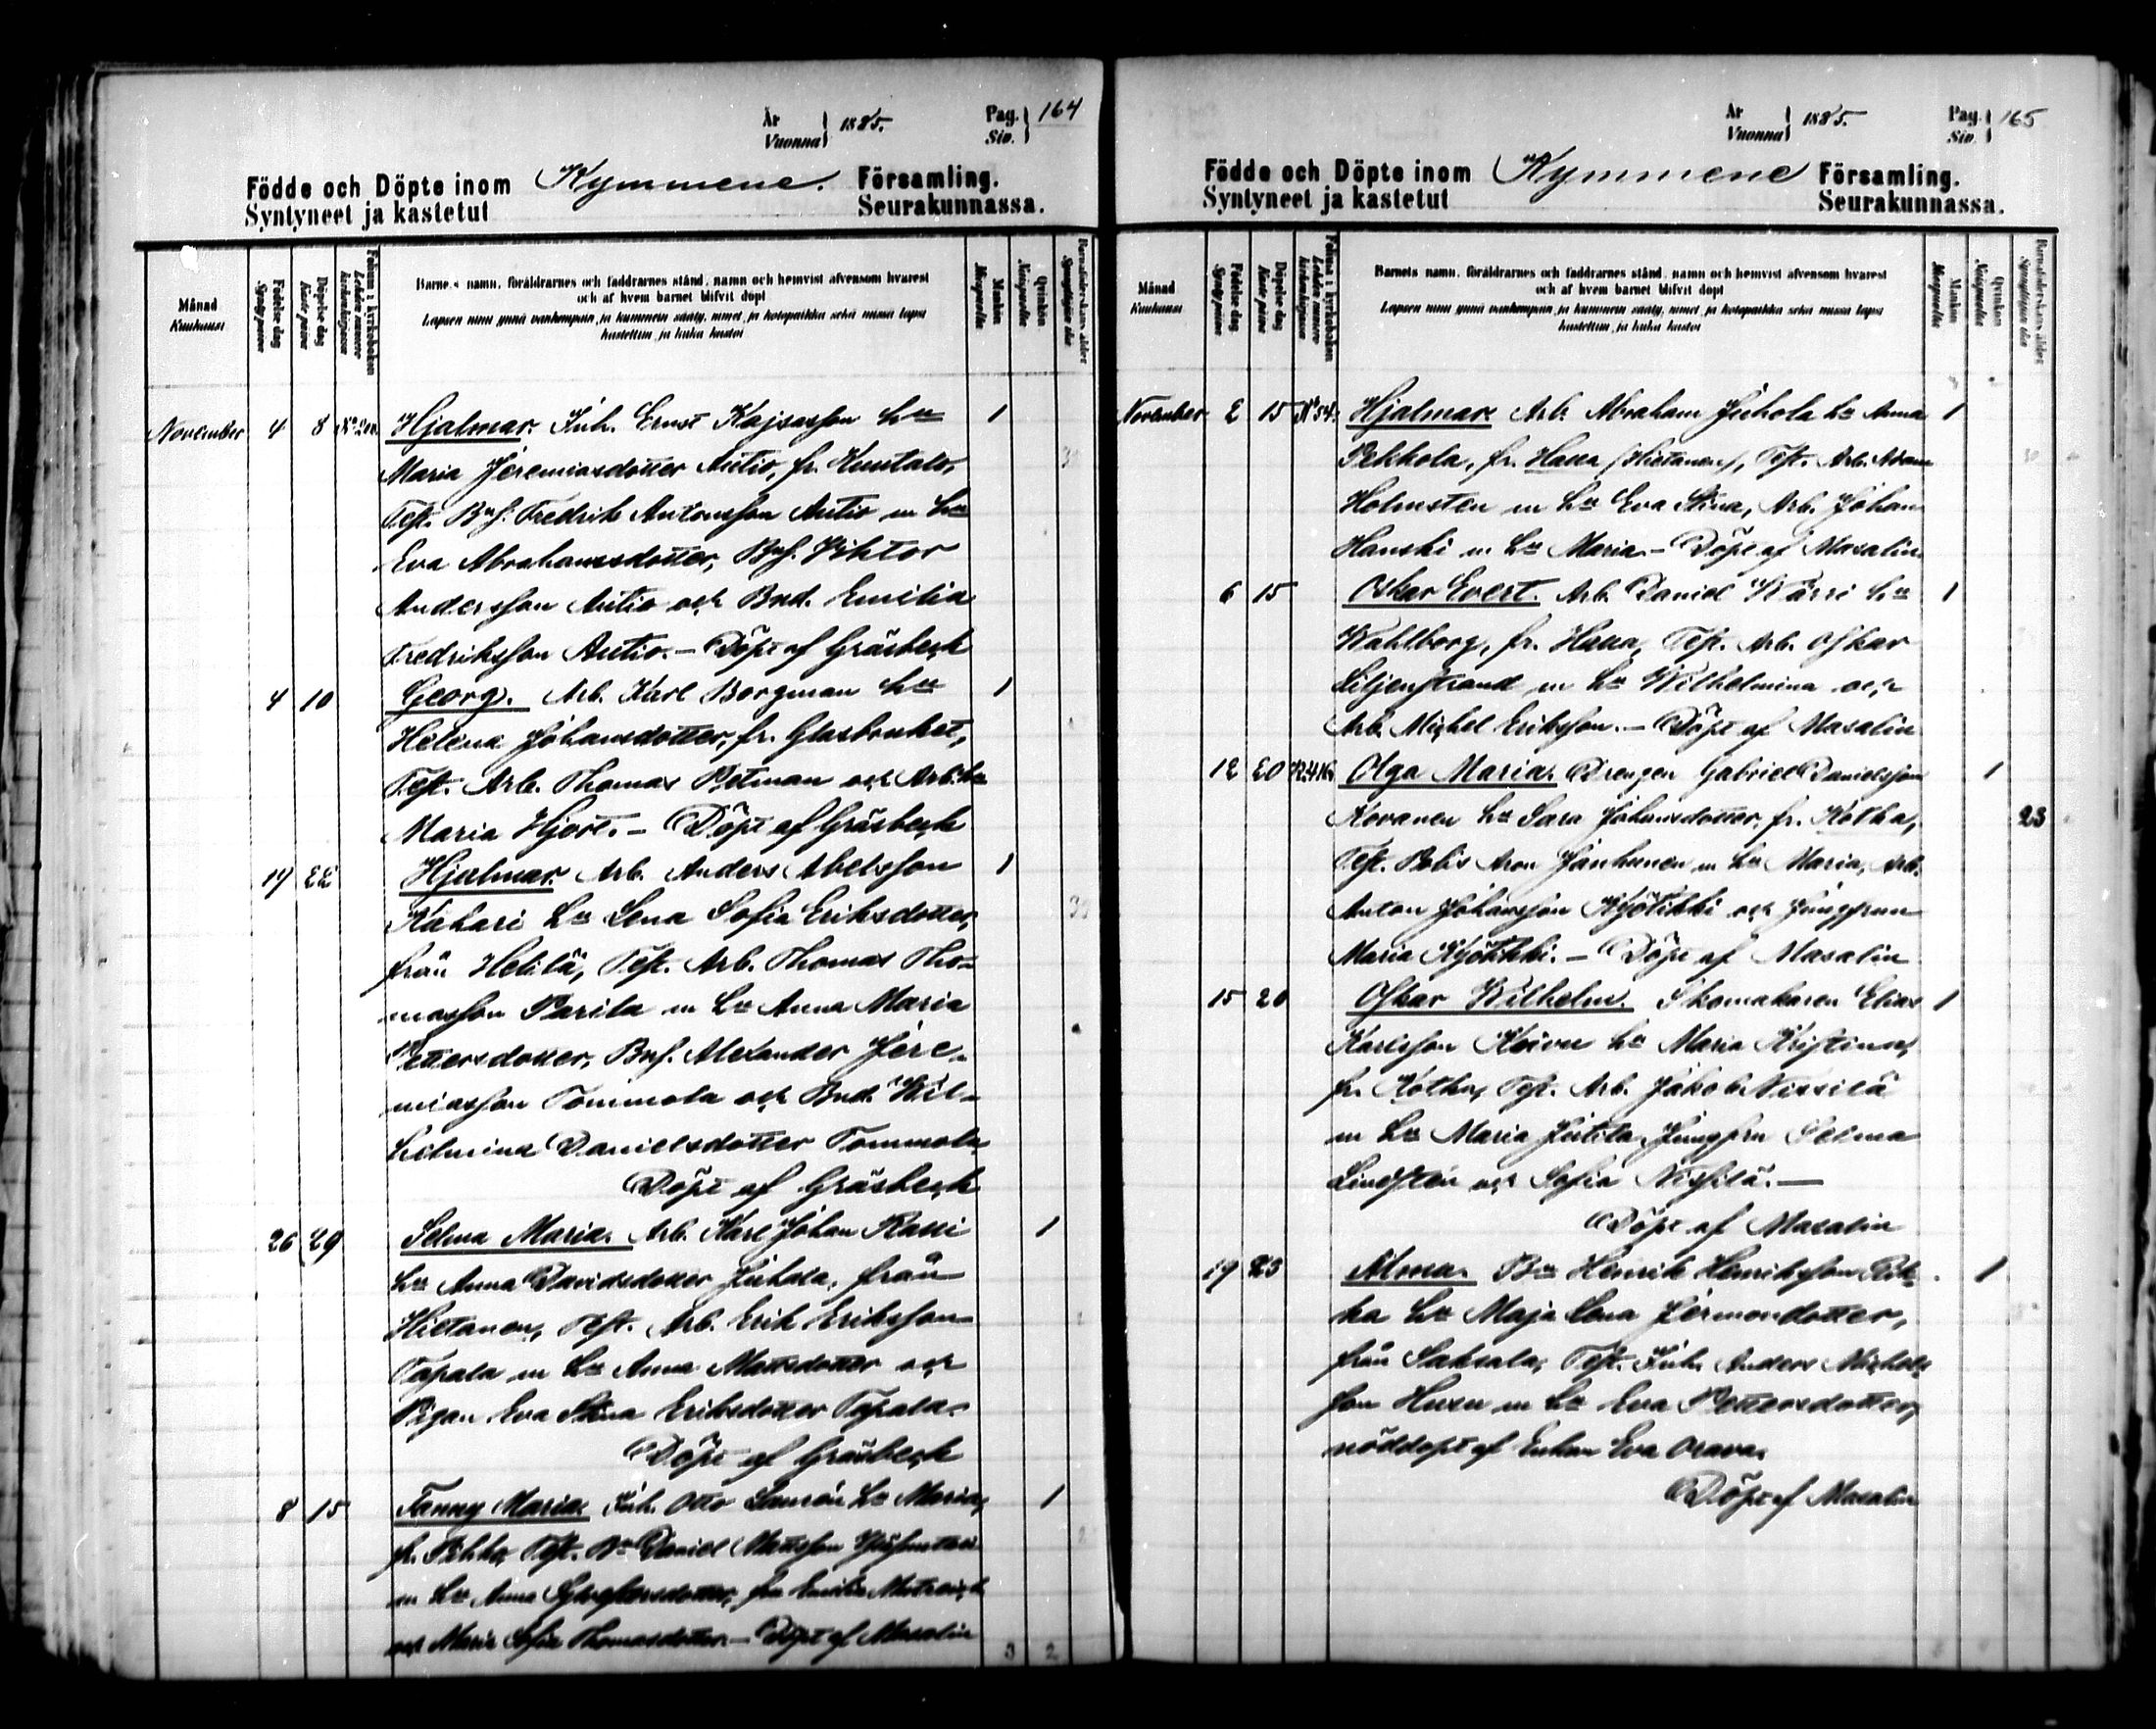 År
Vuonna
1885.
Pag.
Siv.
164
Födde och Döpte inom Kymmene. Församling.
Syntyneet ja kastetut Seurakunnassa.
Månad
Kuukausi
Födelse dag
Synty päivä
Döpelse dag
Kaste päivä
Barnets namn, föräldrarnes och faddrarnes stånd, namn och hemvist äfvensom hvarest
och af hvem barnet blifvit döpt
Lapsen nimi ynnä vanhempain ja kummein sääty, nimet ja kotopaikka sekä missä lapsi
kastettiin ja kuka kastoi
Mankön
Miespuolta
Qvinkön
Naispuolta
November 4 8 Hjalmar. Inh. Ernst Kajsasson h:u 1
Maria Jeremiasdotter Autio, fr.
Test. Bns. Fredrik Antonsson Autio m h:u
Eva Abrahamsdotter, Bns. Viktor
Andersson Autio och Bnd. Emilia
Fredriksson Autio. – Döpt af Gräsbeck
4 10 Georg. Arb. Karl Borgman h:u 1
Helena Johansdotter, fr. Glasbruket,
Test. Arb. Thomas Petman och Arb. h:u
Maria Hjort. – Döpt af Gräsbeck
19 22 Hjalmar. Arb. Anders Abelsson 1
Kahari h:u Lena Sofia Eriksdotter,
från Helilä, Test. Arb. Thomas Tho-
masson Parila m h:u Anna Maria
Pettersdotter, Bns. Alexander Jere-
miasson Tommola och Bnd. Wil-
helmina Danielsdotter Tommola
Döpt af Gräsbeck
26 29 Selma Maria. Arb. Karl Johan Rassi 1
h:u Anna Davidsdotter Juhola, från
Hietanen, Test. Arb. Erik Eriksson
Tapala m h:u Anna Mattsdotter och
Pigan Eva Stina Eriksdotter Tapala.
Döpt af Gräsbeck
8 15 Fanny Maria. Inh. Otto h:u Maria, 1
Test. Daniel Mattsson
m h:u Anna
och Maria Sofia Thomasdotter. – Döpt af Masalin
3 2
År
Vuonna
1885.
Pag.
Siv.
165
Födde och Döpte inom Kymmene Församling.
Syntyneet ja kastetut Seurakunnassa.
Månad
Kuukausi
Födelse dag
Synty päivä
Döpelse dag
Kaste päivä
Barnets namn, föräldrarnes och faddrarnes stånd, namn och hemvist äfvensom hvarest
och af hvem barnet blifvit döpt
Lapsen nimi ynnä vanhempain ja kummein sääty, nimet ja kotopaikka sekä missä lapsi
kastettiin ja kuka kastoi
Mankön
Miespuolta
Qvinkön
Naispuolta
November 2 15 N:o 54. Hjalmar. Arb. Abraham Juhola h:u Anna 1
Pekkola, fr. Haua (Hietanen), Test. Arb. Adam
Holmsten m h:u Eva Stina, Arb. Johan
Hanski m h:u Maria. – Döpt af Masalin
6 15 Oskar Evert. Arb. Daniel Wärri h:u 1
Wahlborg, fr. Haua, Test. Arb. Oskar
Liljenstrand m h:u Wilhelmina och
Arb. Michel Eriksson. – Döpt af Masalin
12 20 Olga Maria. Drengen Gabriel Danielsson 1
Kovanen h:u Sara Johansdotter, fr. Kotka, 23
Test. Polis Aron Janhunen m h:u Maria, Arb.
Anton Johansson Kyötikki och Jungfrun
Maria Kyötikki. – Döpt af Masalin
15 20 Oskar Wilhelm. Skomakaren Elias 1
Karlsson Koivu h:u Maria Kristina,
fr. Kotka, Test. Arb. Jakob Nissilä
m h:u Maria Jutila, Jungfru Selma
Lindsten och Sofia Nissilä. –
Döpt af Masalin
19 23 Alma. B:n Henrik Henriksson Pik- 1
ka h:u Maja Lena Jermondotter,
från Saksala, Test. Inh. Anders Michels-
son Husu m h:u Eva Pettersdotter,
nöddöpt af Enkan Eva Orava.
Döpt af Masalin